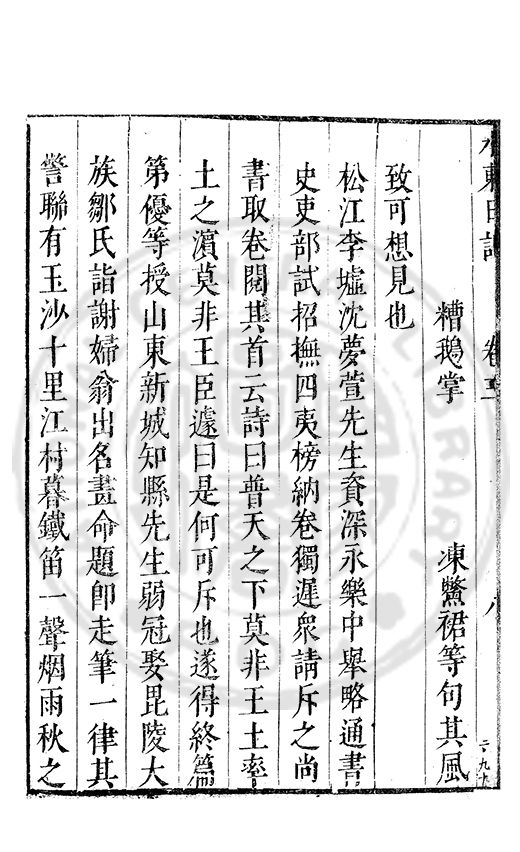 水東日記 卷 八
糟鵝掌 凍鱉裙等句其風
致可想見也
松江李墟沈夢萱先生資深永樂中舉略通書
史吏部試招撫四夷榜納卷獨遲衆請斥之尚
書取卷閱其首云詩曰普天之下莫非王土率
土之濵莫非王臣遽曰是何可斥也遂得終篇
第優等授山東新城知縣先生弱冠娶毘陵大
族鄒氏詣謝婦翁出名畫命題即走筆一律其
警聯有玉沙十里江村暮鐵笛一聲烟雨秋之